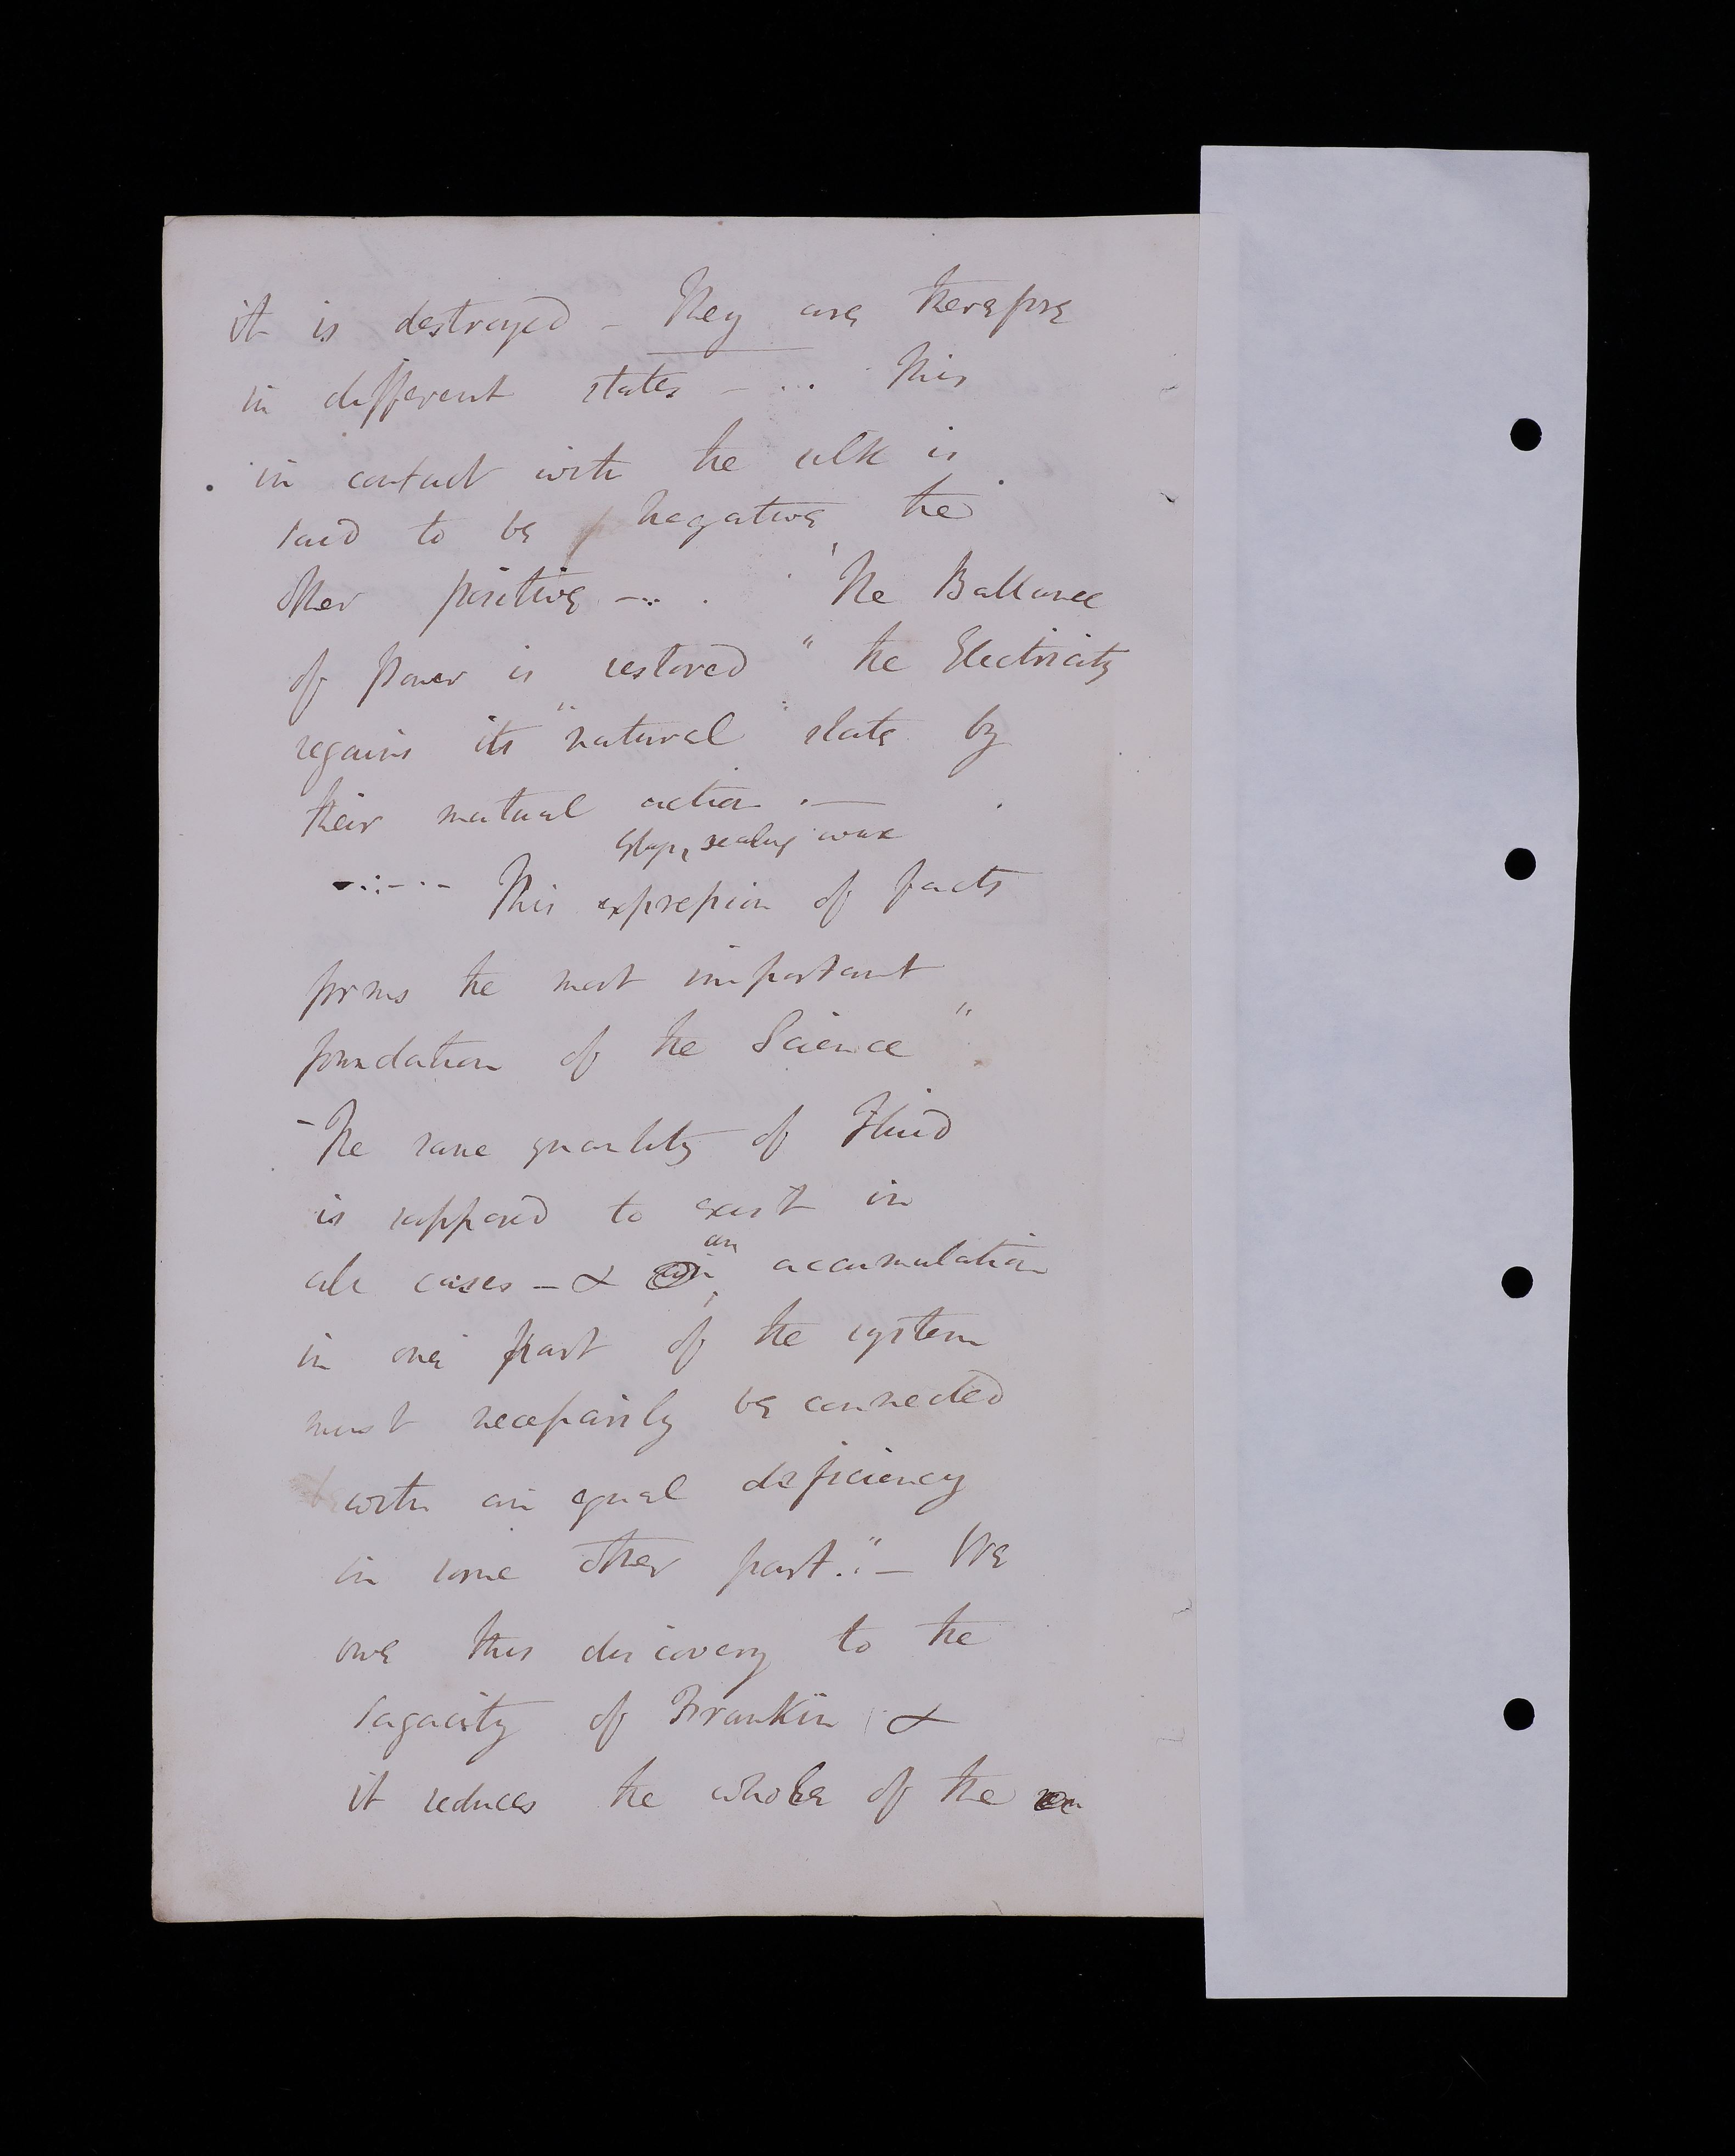 it is destroyed - They are therefore
in different states - ... This
in contact with the silk is
said to be negative, the
other positive -.. . The Ballance
of power is restored " the Electricity
regains its "natural" state by
their mutual action . —
Glass, sealing wax
-.:-.- This expression of facts
forms the most important
foundation of the Science "
- The same quantity of Fluid
is supposed to exist in
all cases - & an accumulation
in one part of the system
must necessarily be connected
with an equal deficiency
in some other part." - We
owe this discovery to the
sagacity of Frankin &
it reduces the whole of the